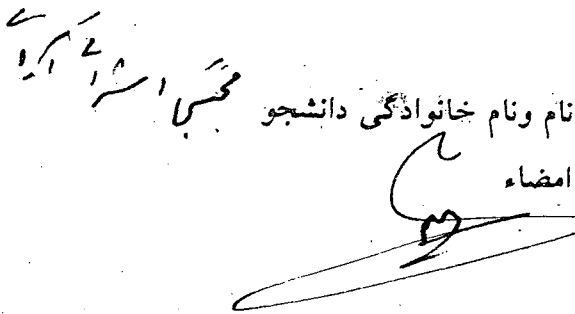 نام ونام خانوادگی دانشجو مجتبی
امضاء